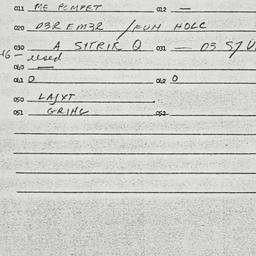 011 ME POMPET 012 —
020 D3R EM3R / FUH HOLC
030 A SITRIK Q 031 — D3 S7U
46 - used
060 —
061 0 062 0
050 LAJXT
051 GRING 052